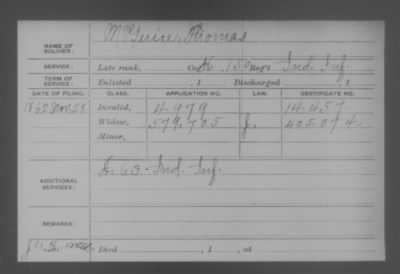 McGuire, Thomas
NAME OF SOLDIER:
SERVICE: Late rank, Co. K, 150 Reg't Ind. Inf.
TERM OF SERVICE: Enlisted , 1 Discharged , 1
DATE OF FILING. CLASS. APPLICATION NO. LAW. CERTIFICATE NO.
1862 Nov. 28 Invalid, 4.979 14.457
Widow, 579.705 J. 405.074.
Minor,
ADDITIONAL SERVICES: K. 63 - Ind. Inf.
REMARKS:
Died , 1 , at